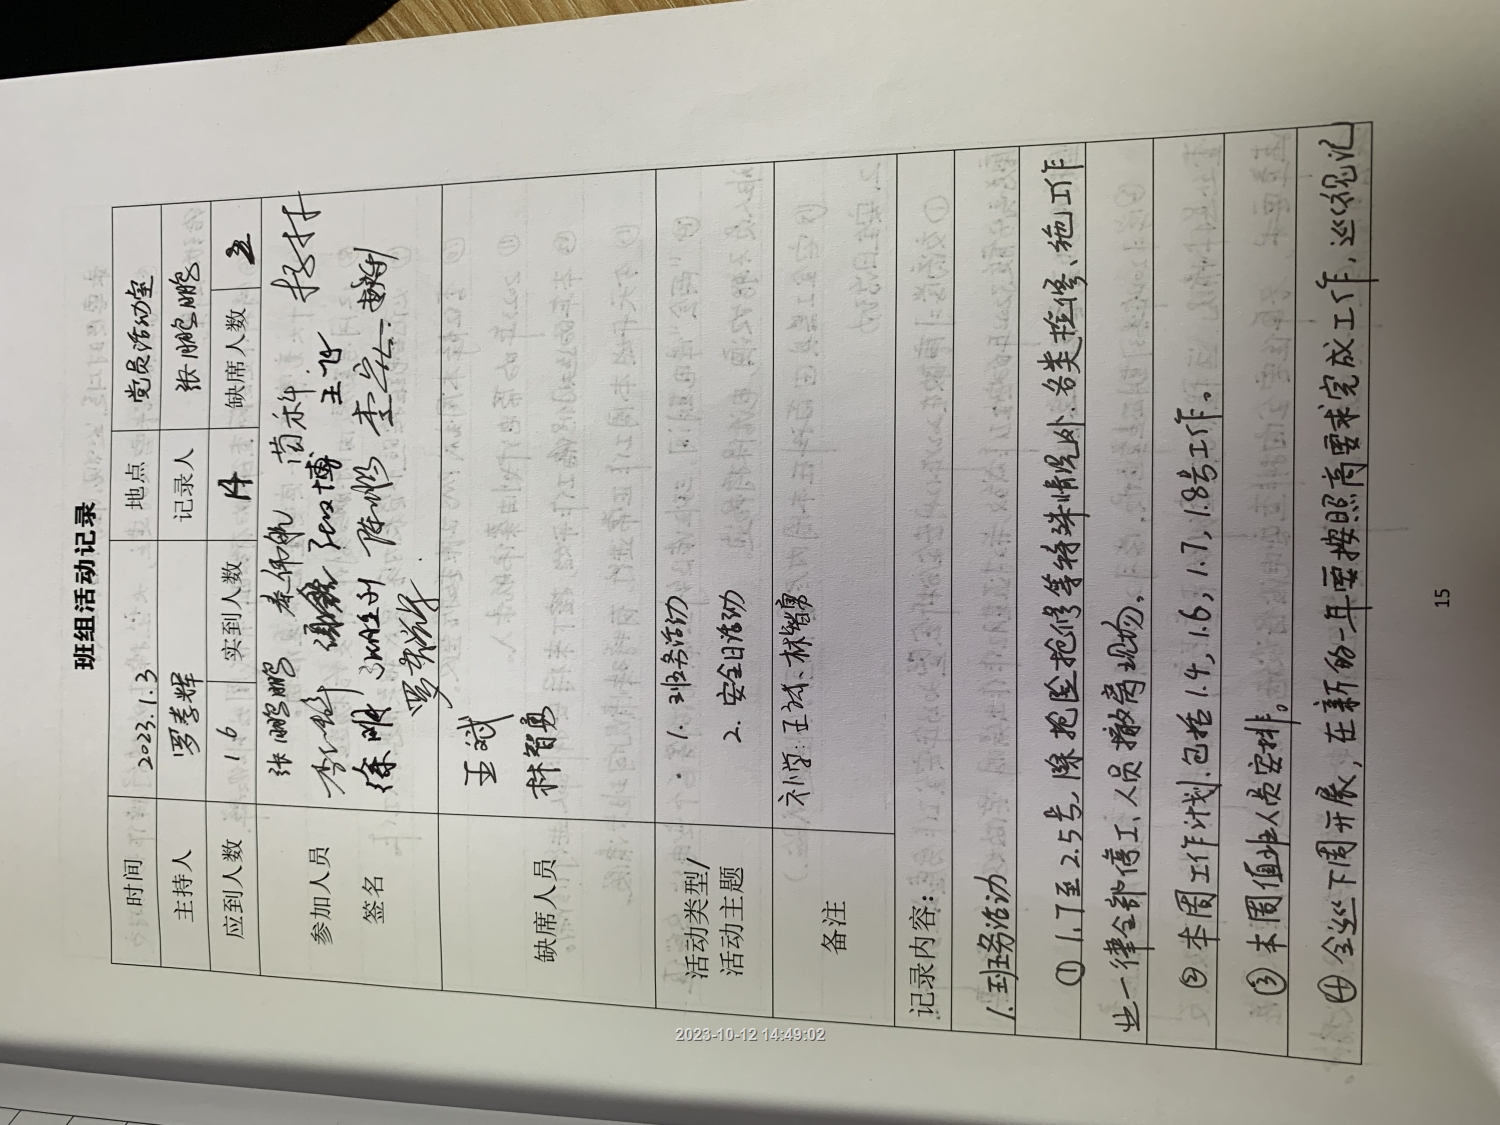 班组活动记录
时间 2023.1.3 地点 党员活动室
主持人 罗孝辉 记录人 张鹏鹏
应到人数 16 实到人数 14 缺席人数 2
参加人员
签名
张鹏鹏 秦仰航 苗科
张博 王飞
徐明 陈彬 李宏
缺席人员
王斌
林智勇
活动类型/
活动主题
1. 班务活动
2. 安全日活动
备注
补学: 王斌、林智勇
记录内容:
1. 班务活动
① 1.7至2.5号,除抢险抢修等特殊情况外,各类检修、施工作
业一律全部停工、人员撤离现场。
② 本周工作计划.包括1.4,1.6,1.7,1.8号工作。
③ 本周值班人员安排。
④ 全巡下周开展,在新的一年要按照高要求完成工作,巡视记
15
2023-10-12 14:49:02